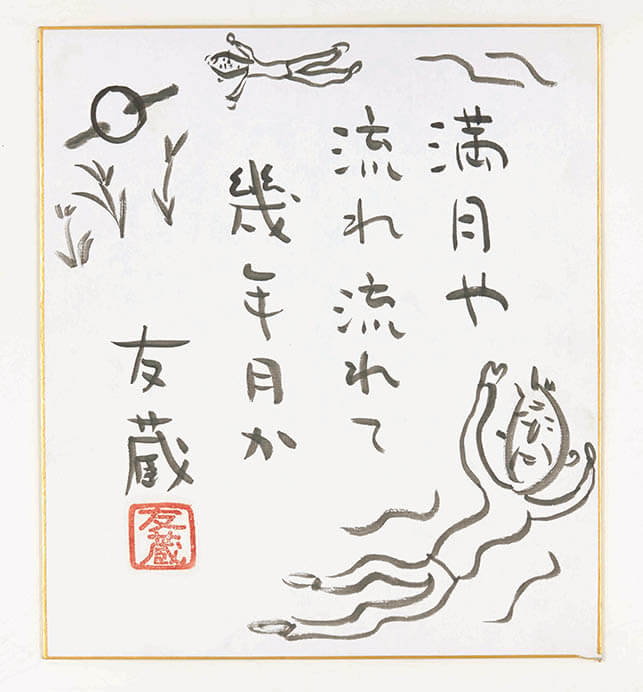 満月や
流れ流れて
幾年月か
友蔵
友蔵